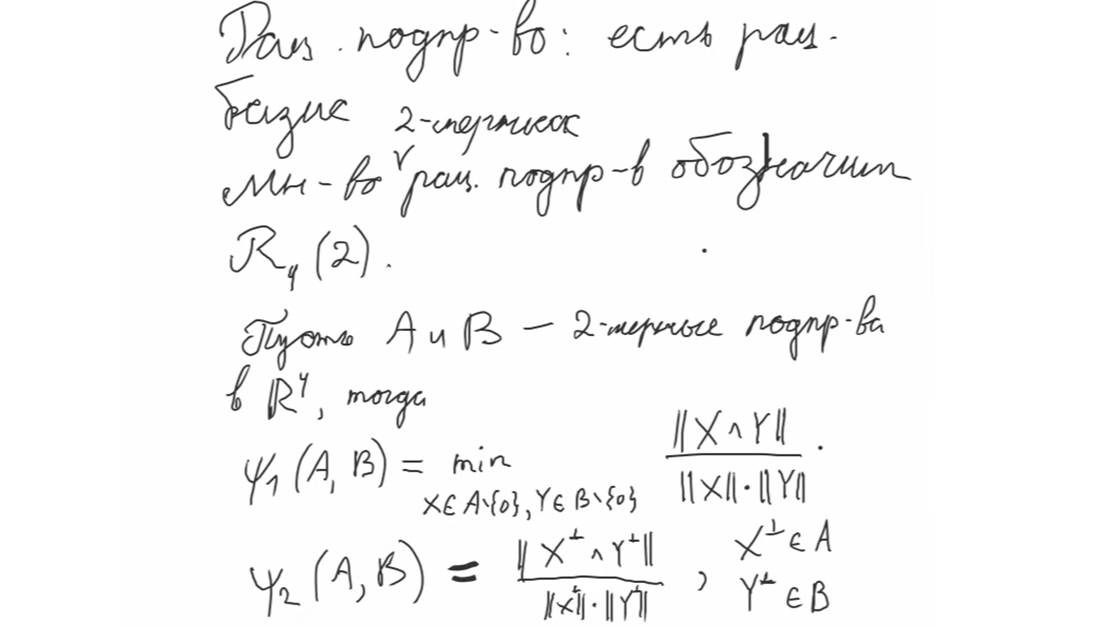 Рац. подпр-во: есть рац.
базис 2-мерных
Мн-во рац. подпр-в обозначим
R₄(2).
Пусть A и B — 2-мерные подпр-ва
в ℝ⁴, тогда
ψ₁(A, B) = min ‖X∧Y‖ / ‖X‖·‖Y‖.
X∈A\{0}, Y∈B\{0}
ψ₂(A, B) = ‖X^⊥∧Y^⊥‖ / ‖X^⊥‖·‖Y^⊥‖, X^⊥∈A
Y^⊥∈B